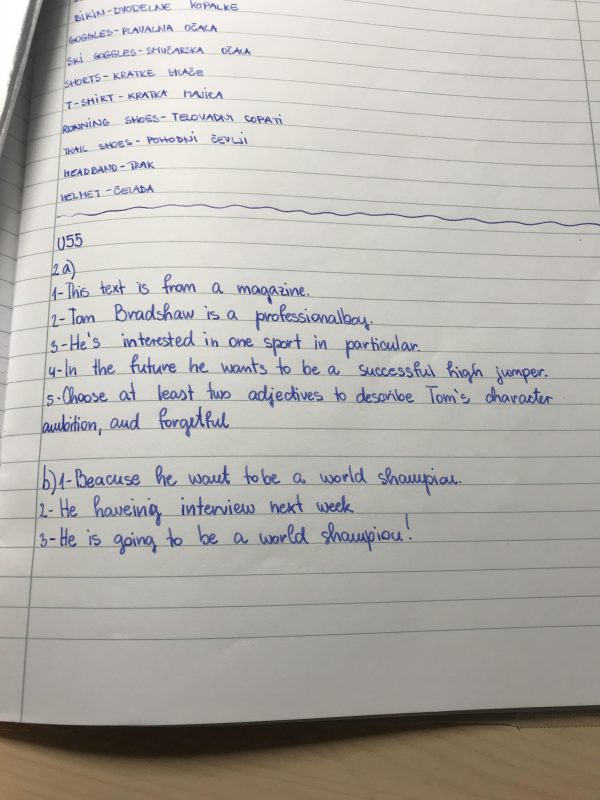 BIKIN-DVODELNE KOPALKE
GOGGLES-PLAVALNA OČALA
SKI GOGGLES-SMUČARSKA OČALA
SHORTS-KRATKE HLAČE
T-SHIRT-KRATKA MAJICA
RUNNING SHOES-TELOVADNI COPATI
TRAIL SHOES-POHODNI ČEVLJI
HEADBAND-TRAK
HELMET-ČELADA
U55
2a)
1-This text is from a magazine.
2-Tom Bradshaw is a professionalboy.
3-He's interested in one sport in particular.
4-In the future he wants to be a successful high jumper.
5-Choose at least two adjectives to describe Tom's character
ambition, and forgetful
b)1-Beacuse he want tobe a world shampion.
2-He haveing interview next week
3-He is going to be a world shampion!